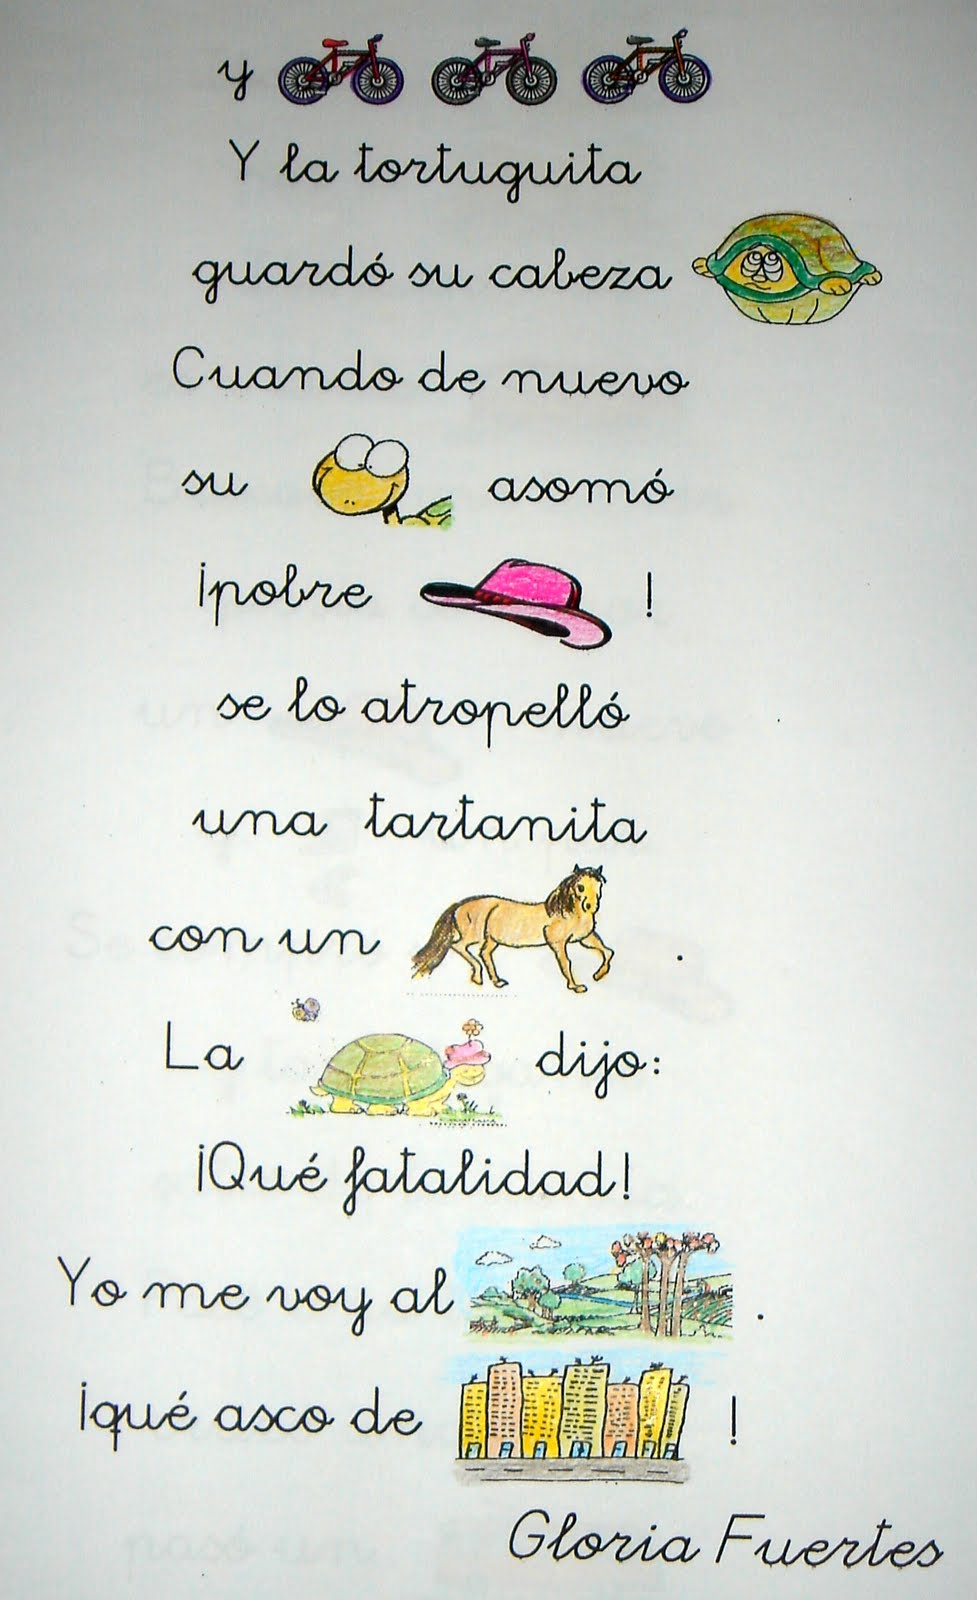 y
Y la tortuguita
guardó su cabeza
Cuando de nuevo
su asomó
¡pobre !
se lo atropelló
una tartanita
con un .
La dijo:
¡Qué fatalidad!
Yo me voy al .
¡qué asco de !
Gloria Fuertes